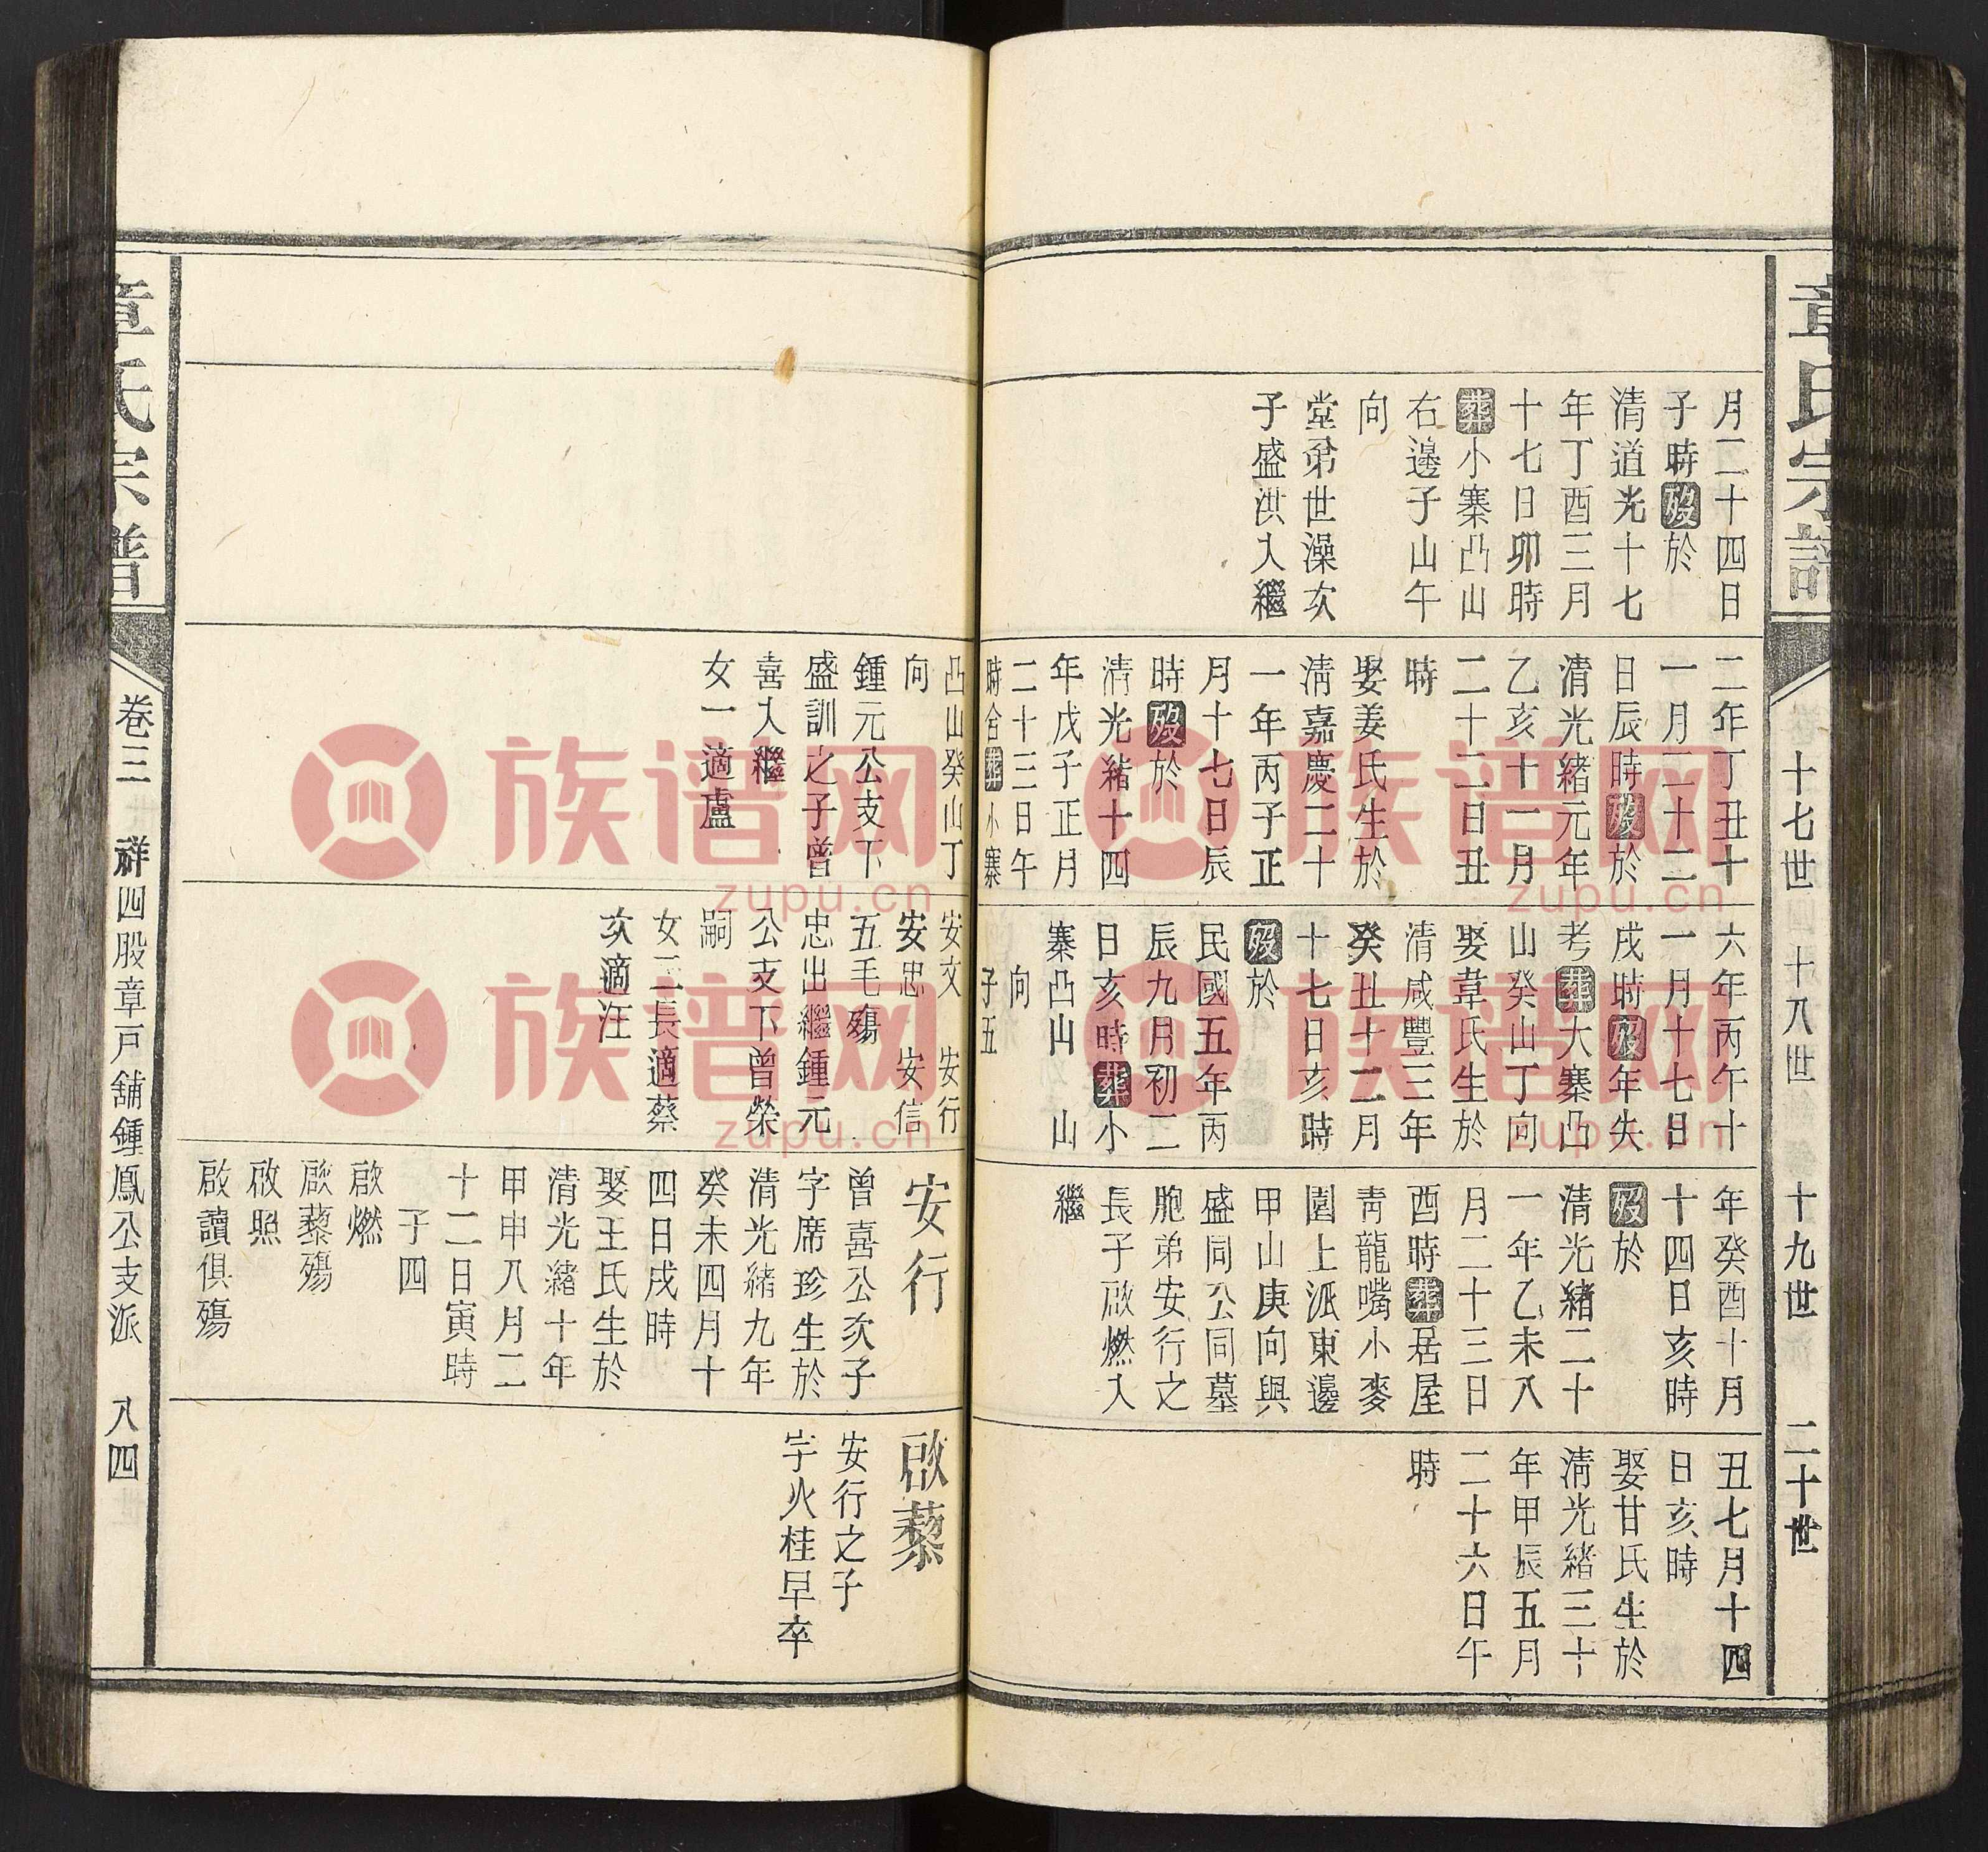 章氏宗譜
十七世 十八世 十九世 二十世
月二十四日
子時殁於
清道光十七
年丁酉三月
十七日卯時
葬小寨凸山
右邊子山午
向
堂弟世澡次
子盛洪入繼
二年丁丑十
一月二十二
日辰時殁於
清光緒元年
乙亥十一月
二十二日丑
時
娶姜氏生於
清嘉慶二十
一年丙子正
月十七日辰
時殁於
清光緒十四
年戊子正月
二十三日午
時合葬小寨
六年丙午十
一月十七日
戌時殁年失
考葬大寨凸
山癸山丁向
娶韋氏生於
清咸豐三年
癸丑十二月
十七日亥時
殁於
民國五年丙
辰九月初二
日亥時葬小
寨凸山 山
向
子五
年癸酉十月
十四日亥時
殁於
清光緒二十
一年乙未八
月二十三日
酉時葬居屋
靑龍嘴小麥
園上派東邊
甲山庚向與
盛同公同墓
胞弟安行之
長子啟燃入
繼
丑七月十四
日亥時
娶甘氏生於
清光緒三十
年甲辰五月
二十六日午
時
凸山癸山丁
向
鍾元公支下
盛訓之子曾
喜入繼
女一適盧
安文 安行
安忠 安信
五毛殤
忠出繼鍾元
公支下曾榮
嗣
女二長適蔡
次適汪
安行
曾喜公次子
字席珍生於
清光緒九年
癸未四月十
四日戌時
娶王氏生於
清光緒十年
甲申八月二
十二日寅時
子四
啟燃
啟藜殤
啟照
啟讀俱殤
啟藜
安行之子
字火桂早卒
章氏宗譜
卷三 祥四股章戸舖鍾鳳公支派 八四
族谱网
zupu.cn
族谱网
zupu.cn
族谱网
zupu.cn
族谱网
zupu.cn